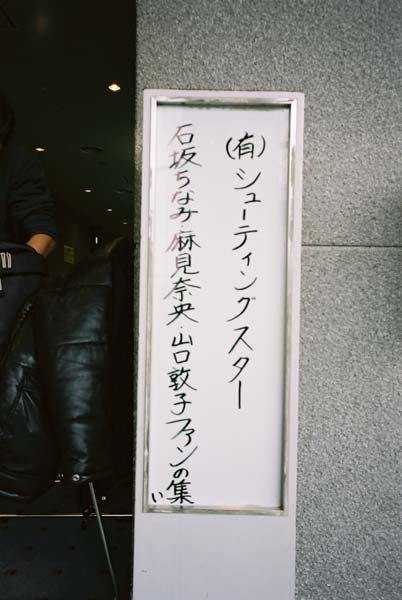 (有)シューティングスター
石坂ちなみ・麻見奈央・山口敦子ファンの集い